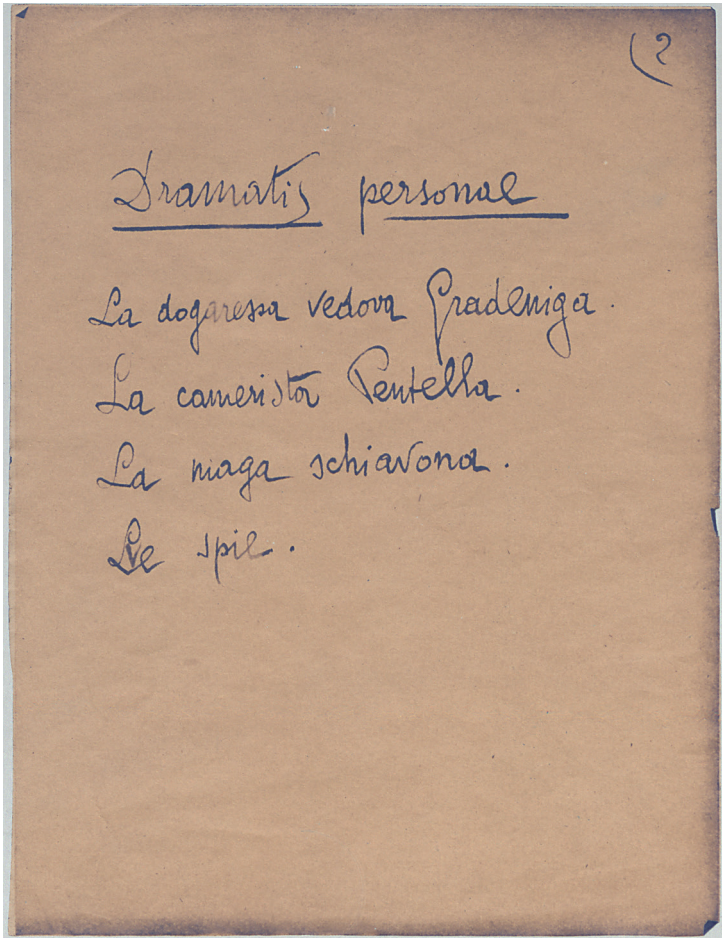 (2
Dramatis personae
La dogaressa vedova Gradeniga.
La camerista Pentella.
La maga schiavona.
Le spie.